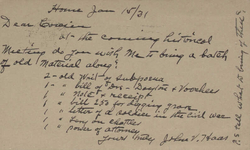 Home Jan 15/31
Dear Cousin
At the coming historical
Meeting do you wish Me to bring a batch
of old Material along?
2 - old Writ - subpoena
1 - bill of - Dayton & Voorhees
1 - Note & receipt
1 - bill 250 for digging grave
1 - letter of a soldier in the Civil War
1 - on chattel
1 - power of attorney
Yours truly John V. Haas
P.S. tell what to bring of these?